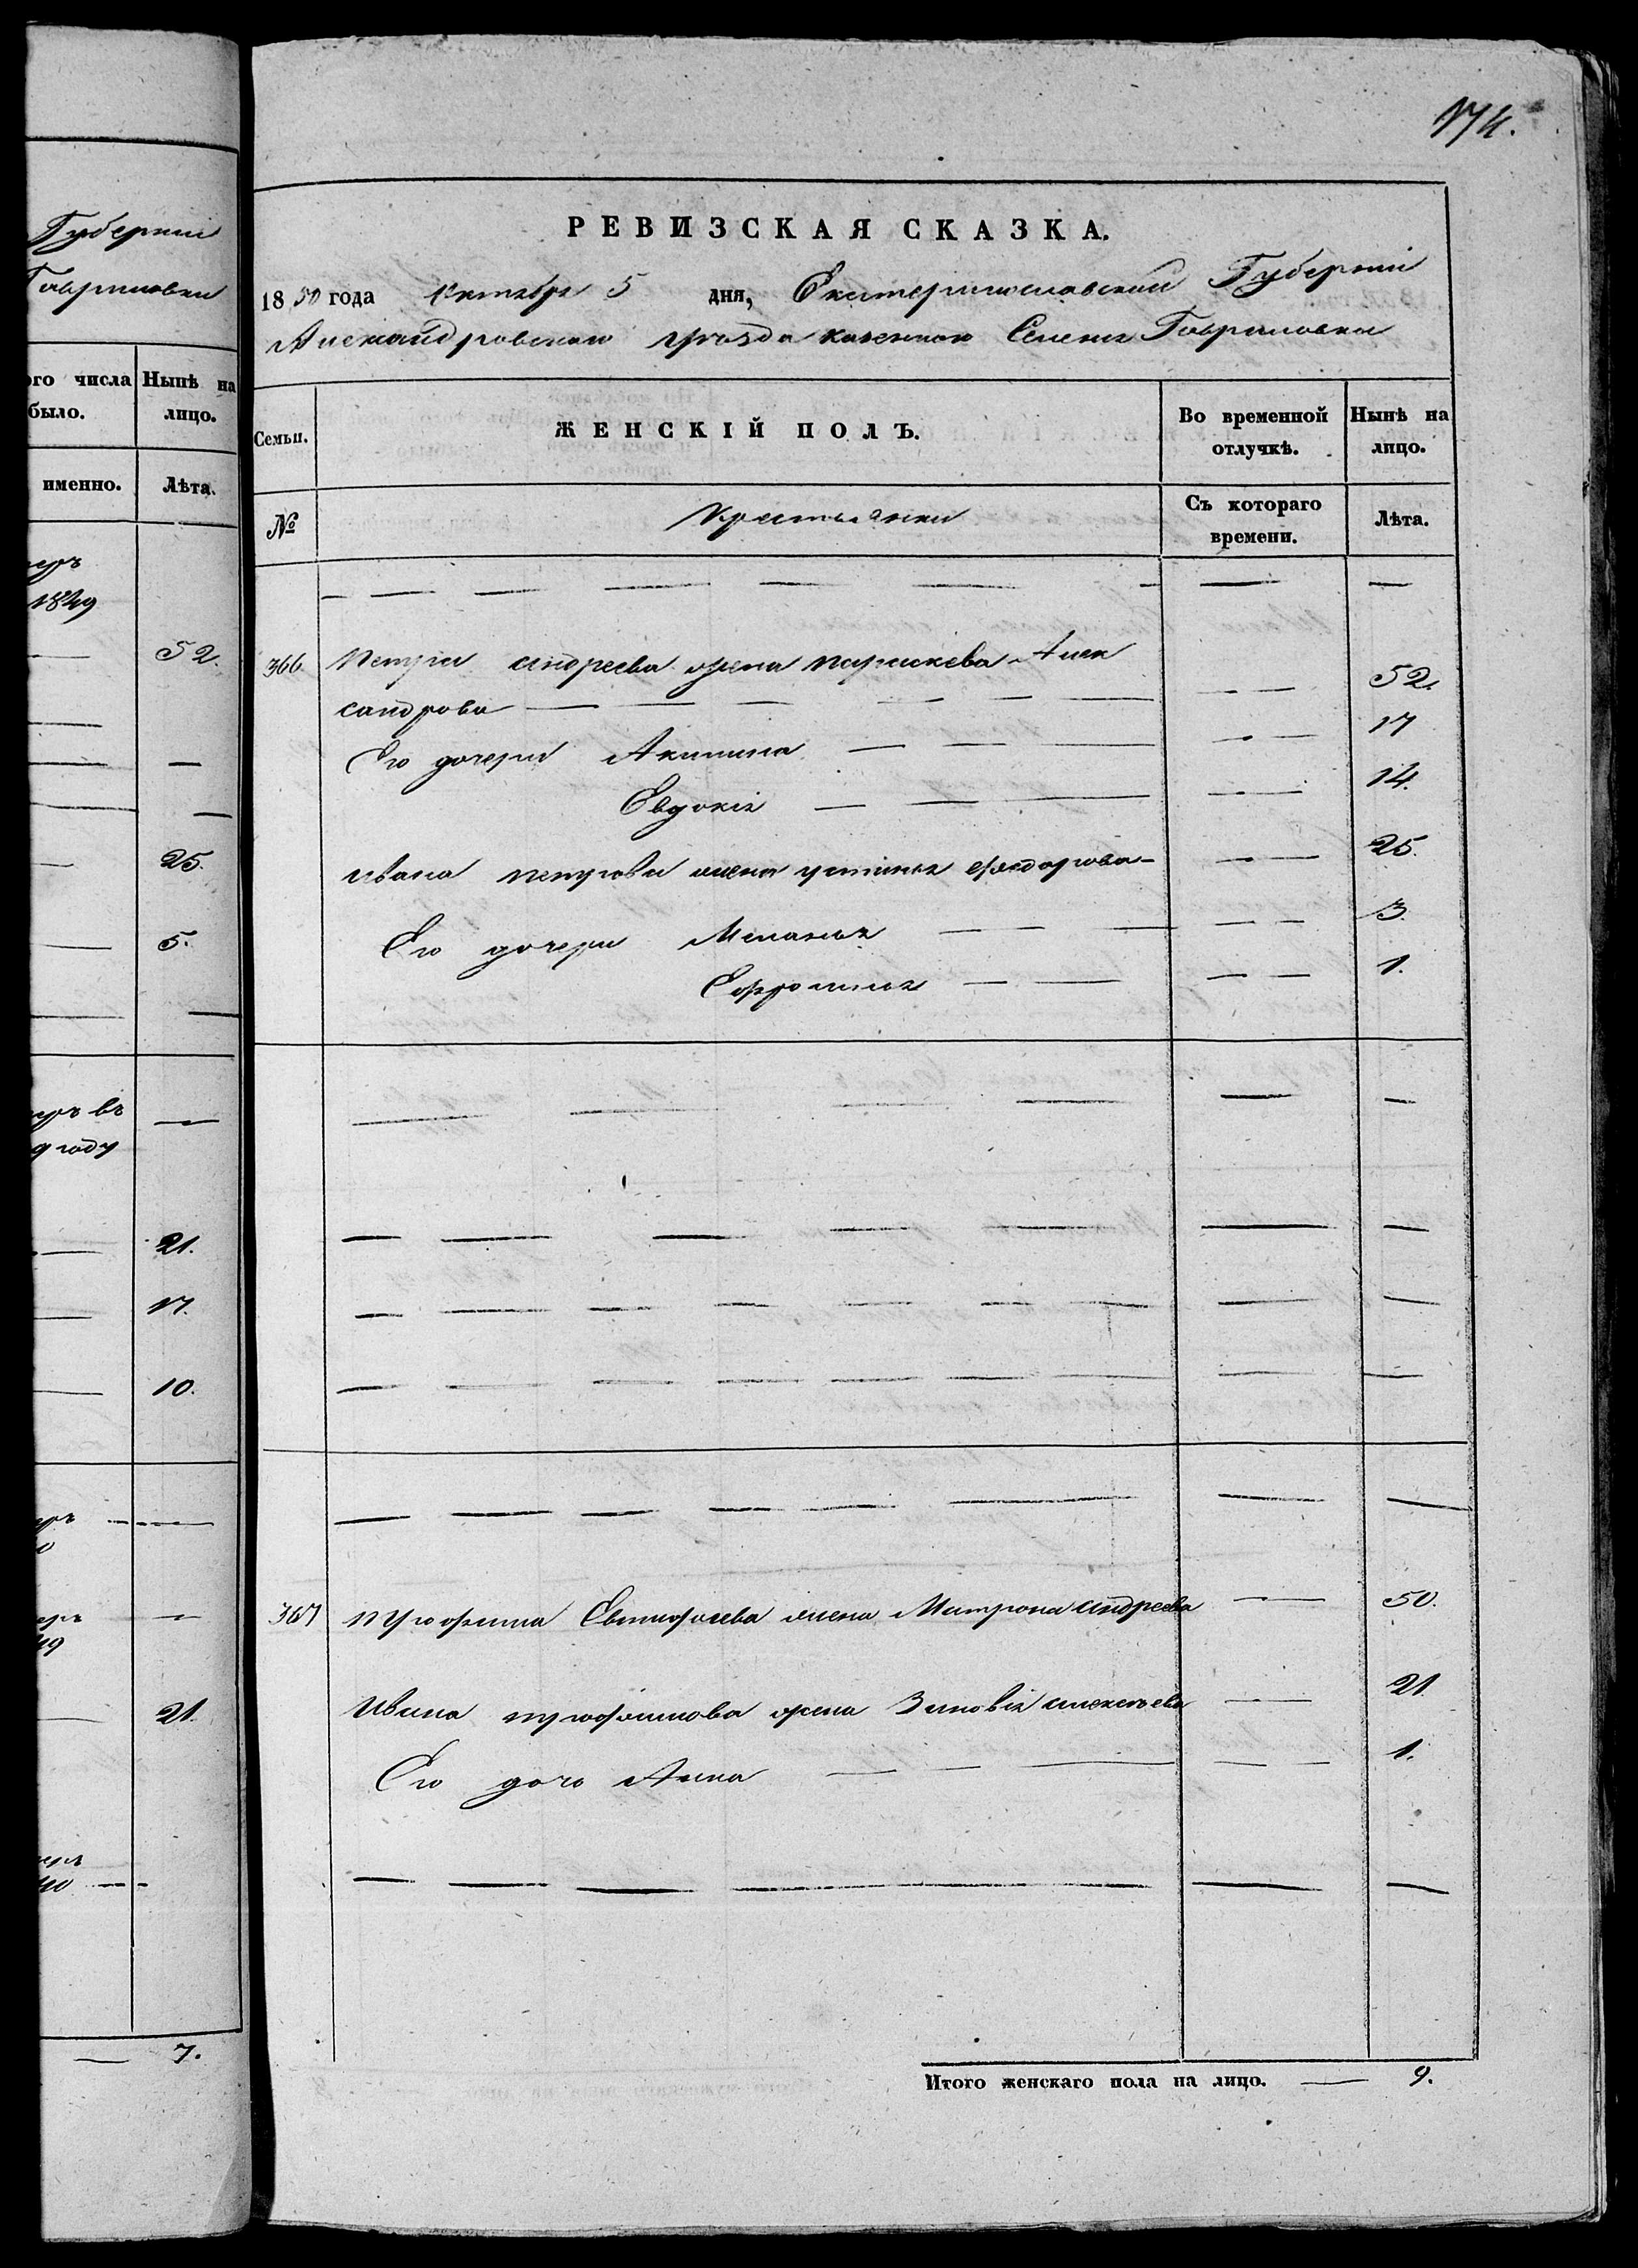 174.
Губерніи
Гавриловки
ого числа
было.
Нынѣ на
лицо.
именно.
Лѣта.
1849
52.
25.
5.
въ
году
21.
17.
10.
21.
7.
РЕВИЗСКАЯ СКАЗКА.
1850 года Октября 5 дня, Екатеринославской Губерніи
Александровскаго уѣзда казенного Селенія Гавриловки
Семьи.
ЖЕНСКІЙ ПОЛЪ.
Во временной
отлучкѣ.
Нынѣ на
лицо.
№
Крестьянки
Съ котораго
времени.
Лѣта.
366. Петра андреева жена параскева Алек
сандрова 52.
Его дочери Акилина 17
Евдокія 14.
ивана петрова жена устинья федорова 25.
Его дочери Меланья 3.
Ефросинья 1.
367 Трофима Евтифеева жена Матрона андреева 50.
Ивана трофимова жена Зиновія алексеева 21.
Его дочь Анна 1.
Итого женскаго пола на лицо. 9.